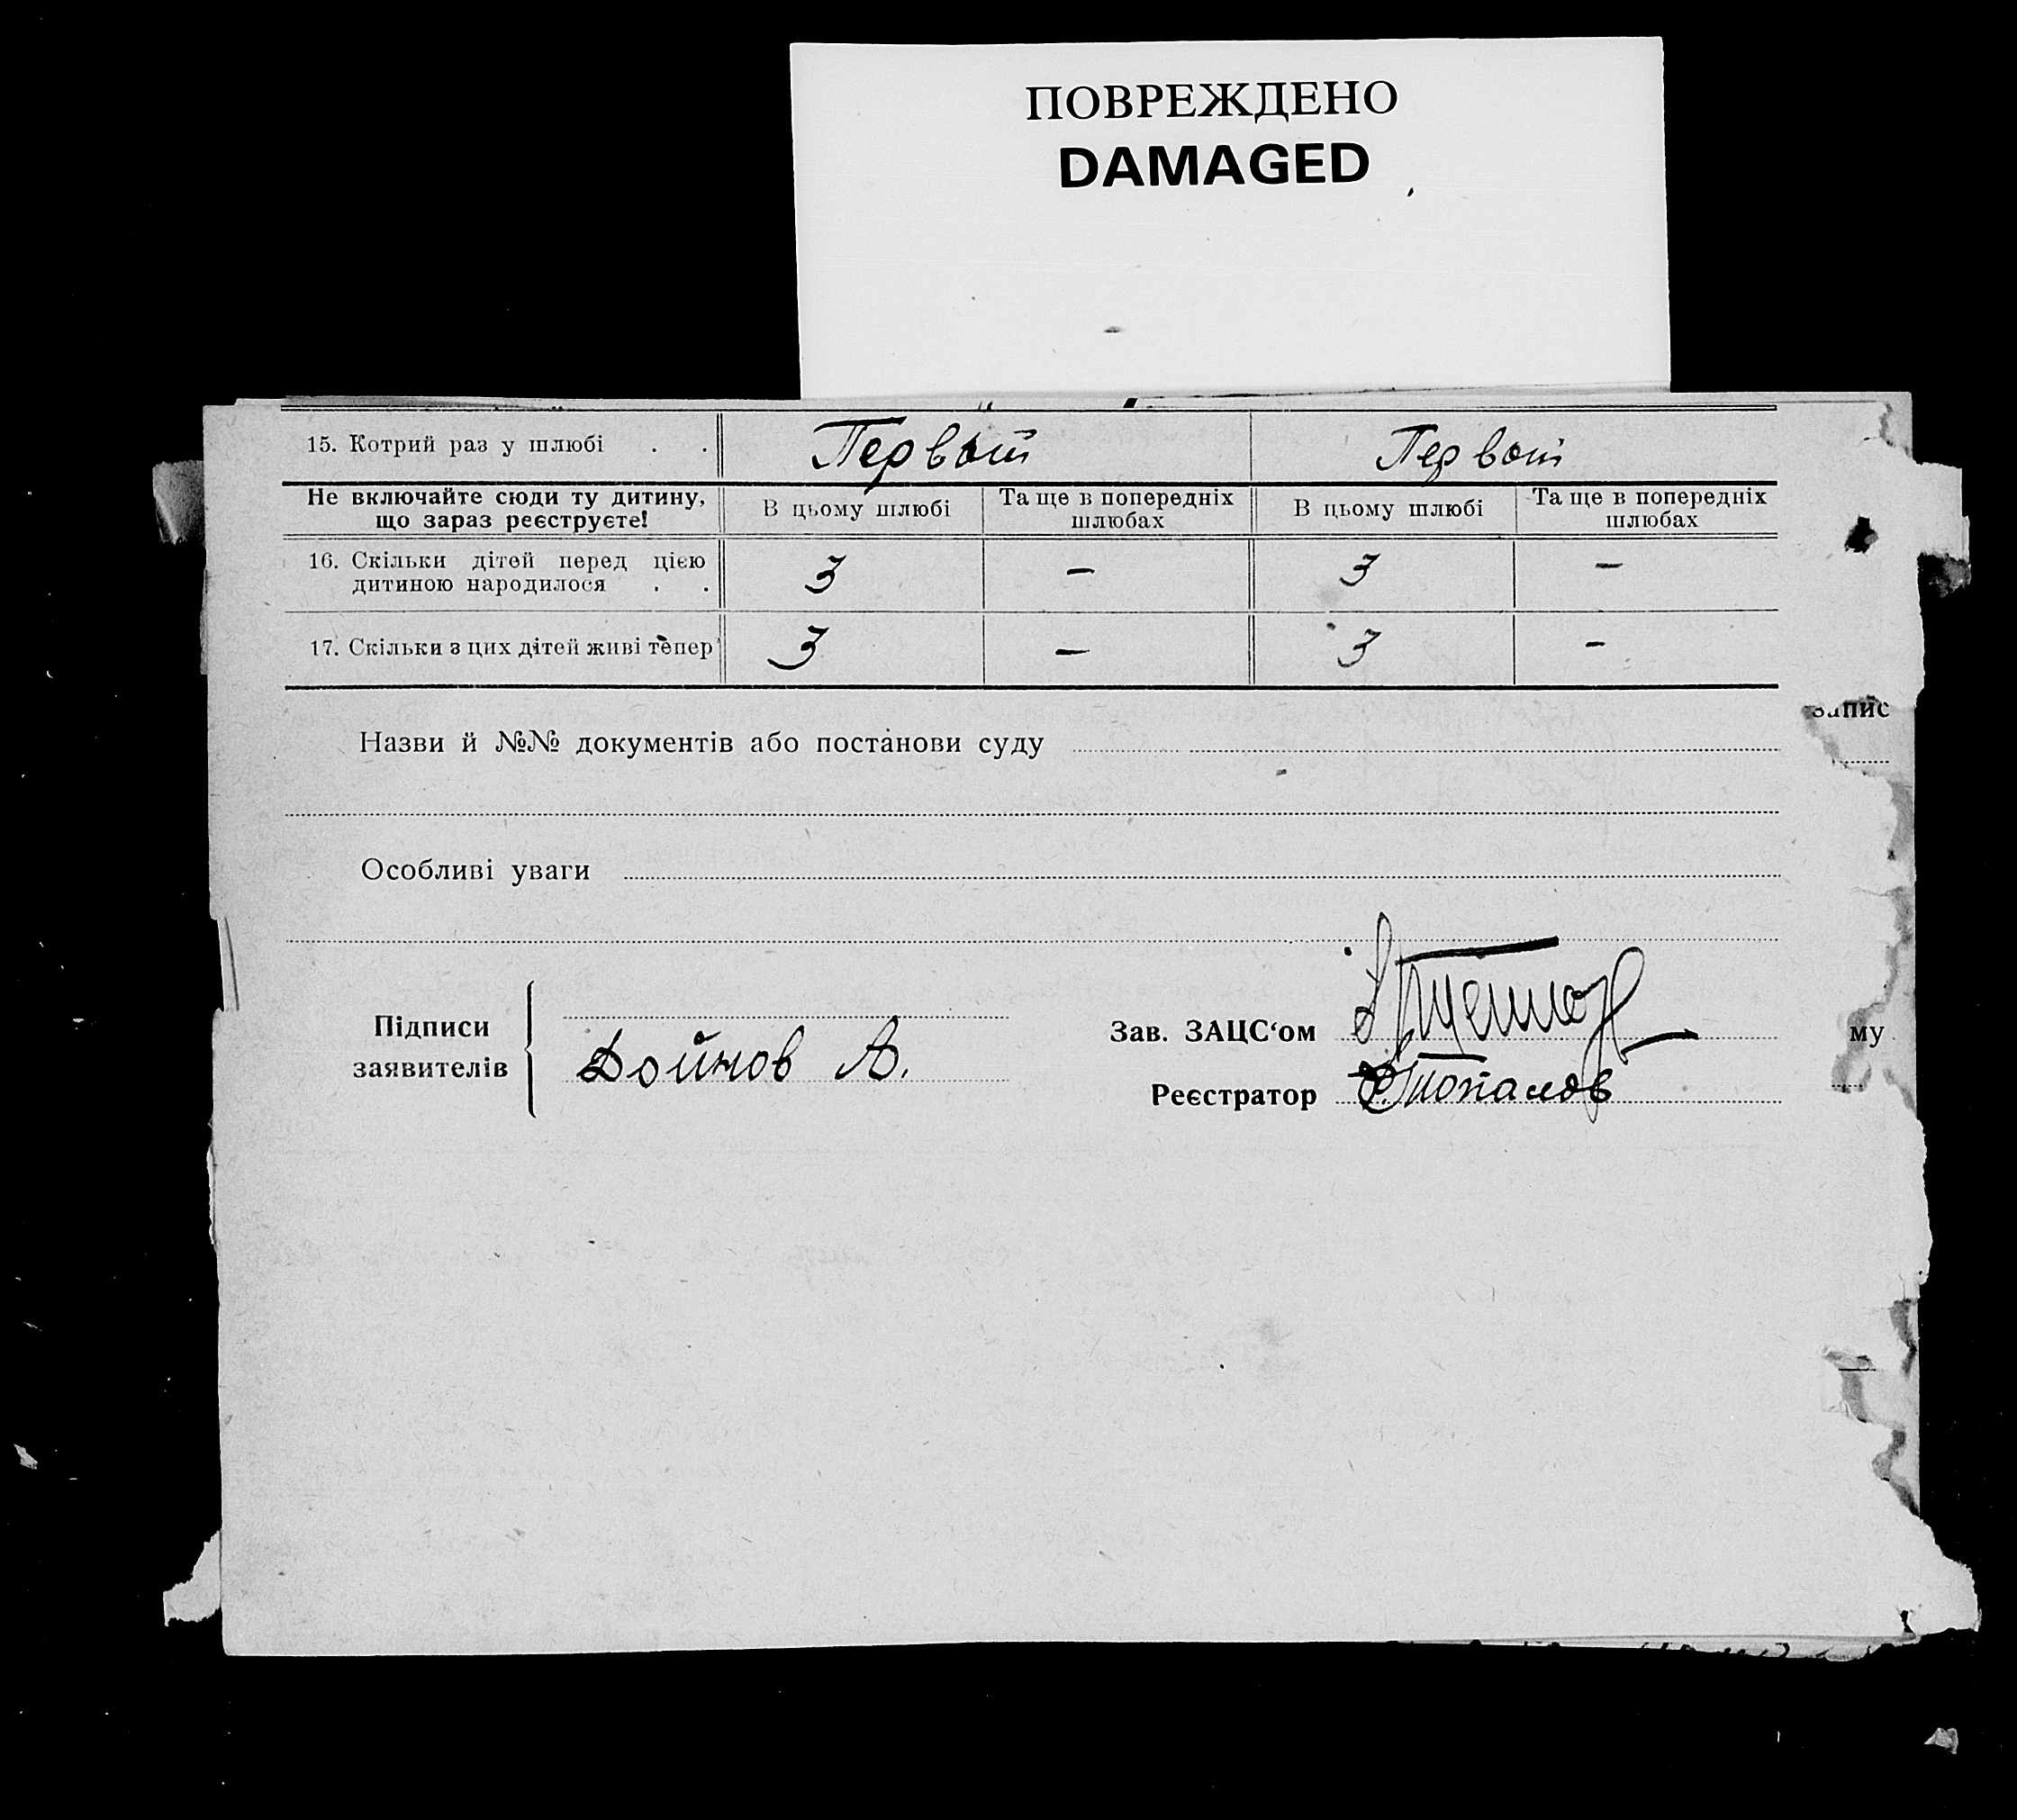 ПОВРЕЖДЕНО
DAMAGED
15. Котрий раз у шлюбі . . Первый Первый
Не включайте сюди ту дитину, що зараз реєструєте! В цьому шлюбі Та ще в попередніх шлюбах В цьому шлюбі Та ще в попередніх шлюбах
16. Скільки дітей перед цією
дитиною народилося . . 3 — 3 —
17. Скільки з цих дітей живі тепер 3 — 3 —
Запис
Назви й №№ документів або постанови суду
Особливі уваги
Підписи
заявителів
Дойнов А.
Зав. ЗАЦС‘ом
му
Реєстратор Топалов